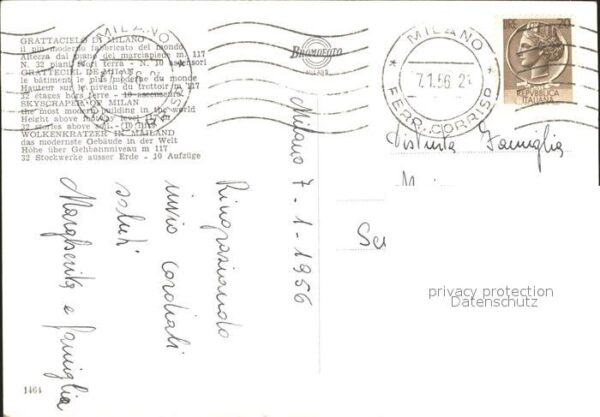 GRATTACIELO DI MILANO
il più moderno fabbricato del mondo
Altezza dal piano del marciapiede m. 117
N. 32 piani fuori terra - N. 10 ascensori
GRATTECIEL DE MILAN
le bâtiment le plus moderne du monde
Hauteur sur le niveau du trottoir m. 117
32 étages hors terre - 10 ascenseurs
SKYSCRAPER OF MILAN
the most modern building in the world
Height above
32 stories above
WOLKENKRATZER IN MAILAND
das modernste Gebäude in der Welt
Höhe über Gehbahnniveau m 117
32 Stockwerke ausser Erde - 10 Aufzüge
MILANO
BROMOFOTO
MILANO
MILANO
7.1.56
FERR. CORRISP.
LIRE 20
REPVBBLICA
ITALIANA
Milano 7-1-1956
Ringraziando
invio cordiali
saluti
Margherita e famiglia
Distinta Famiglia
privacy protection
Datenschutz
1464